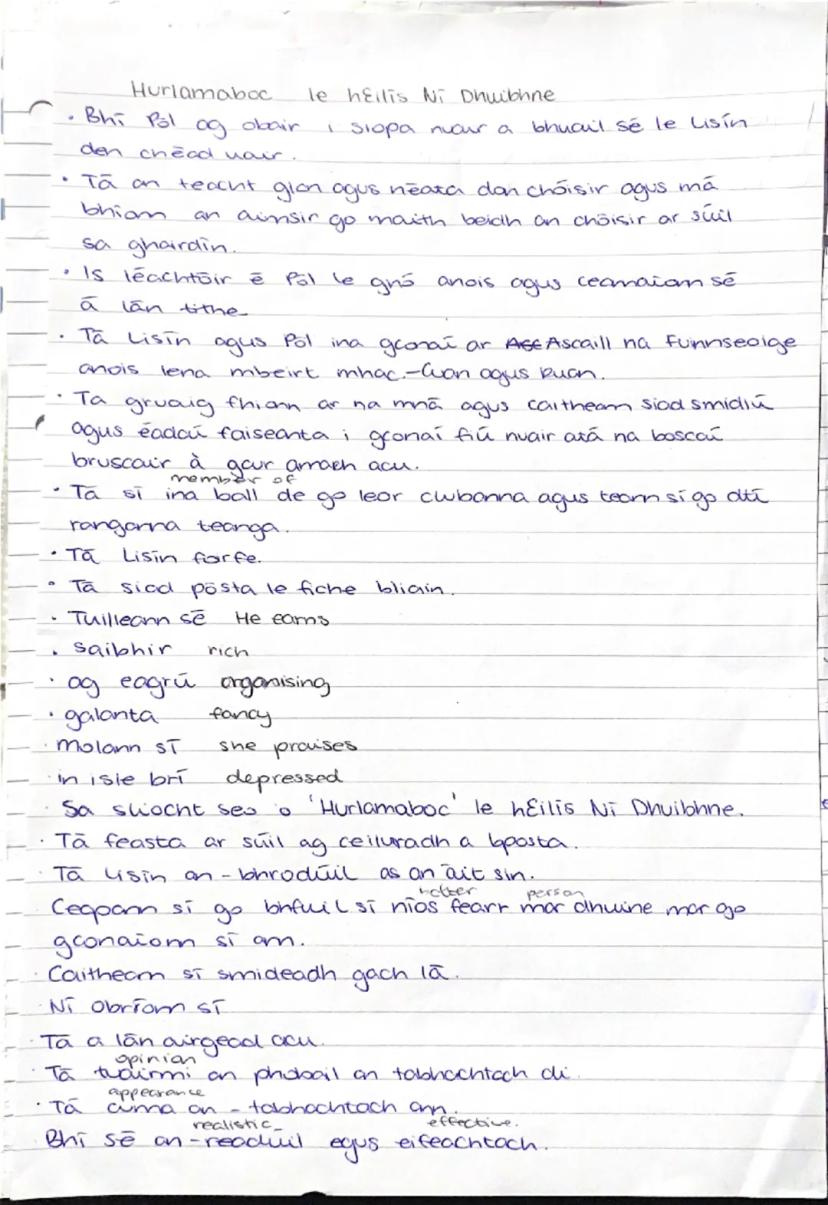 Hurlamaboc le hEilís Ní Dhuibhne
• Bhí Pól ag obair i siopa nuair a bhuail sé le Lisín
den chéad uair.
• Tá an teacht glan agus néata don chóisir agus má
bhíonn an aimsir go maith beidh an chóisir ar súil
sa ghairdín.
• Is léachtóir é Pól le gnó anois agus ceannaíonn sé
á lán tithe
• Tá Lisín agus Pól ina gconaí ar Ascaill na Fuinnseoige
anois lena mbeirt mhac.-Cuan agus Ruan.
• Ta gruaig fhionn ar na mná agus caitheann siad smidiú
agus éadaí faiseanta i gconaí fiú nuair atá na boscaí
bruscair à gcur amach acu.
member of
• Tá sí ina ball de go leor clubanna agus teann sí go dtí
ranganna teanga.
• Tá Lisín foirfe.
• Tá siad pósta le fiche bliain.
• Tuilleann sé He earns
• saibhir rich
• ag eagrú organising
• galanta fancy
• Molann sí she praises
• in ísle brí depressed
• Sa sliocht seo ó 'Hurlamaboc' le hEilís Ní Dhuibhne.
• Tá feasta ar súil ag ceiluradh a bposta.
• Tá Lisín an-bhrodúil as an áit sin.
person
Ceapann sí go bhfuil sí níos fearr mar dhuine mar go
gconaíonn sí ann.
• Caitheann sí smideadh gach lá.
• Ní Obríonn sí
Tá a lán airgead acu.
opinian
• Tá tuairmí an phobail an tabhachtach di.
appearance
• Tá cuma an-tabhachtach ann.
realistic effective.
Bhí sé an-readúil egus eifeachtach.